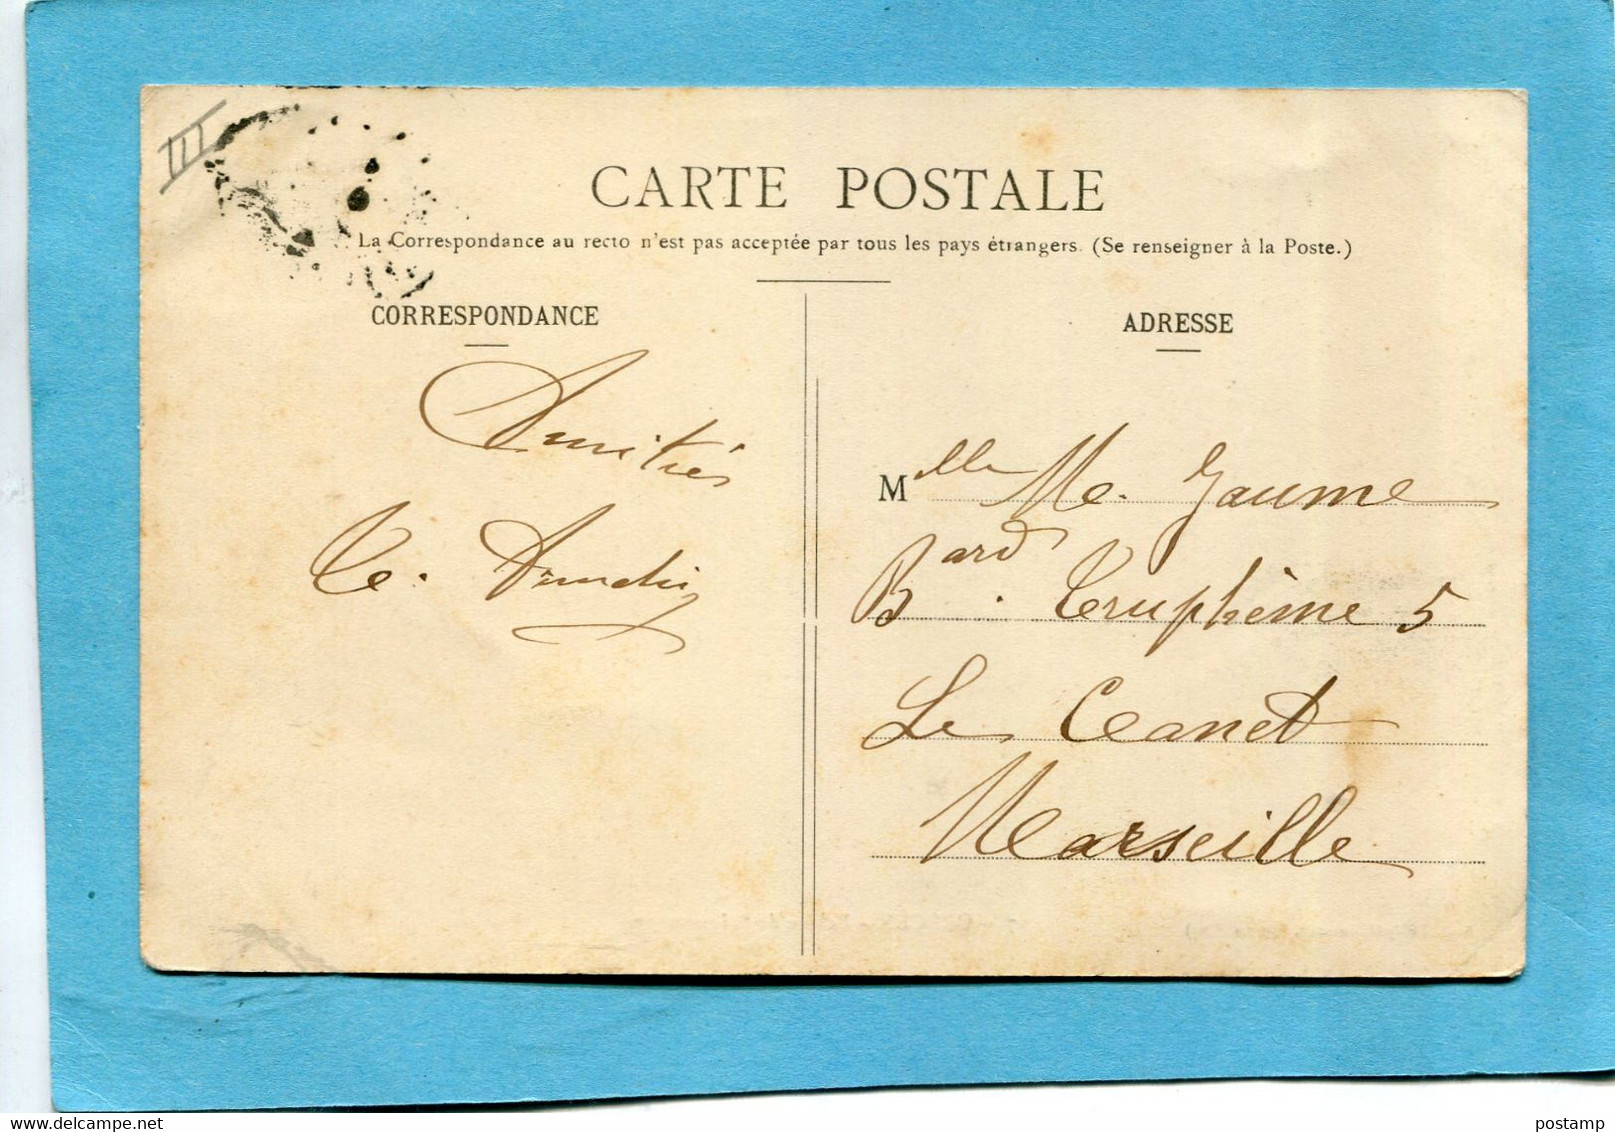 III
CARTE POSTALE
La Correspondance au recto n'est pas acceptée par tous les pays étrangers. (Se renseigner à la Poste.)
CORRESPONDANCE
ADRESSE
Amitiés
Mlle M. Jaume
Bard. Truphème 5
Le Canet
Marseille
postamp